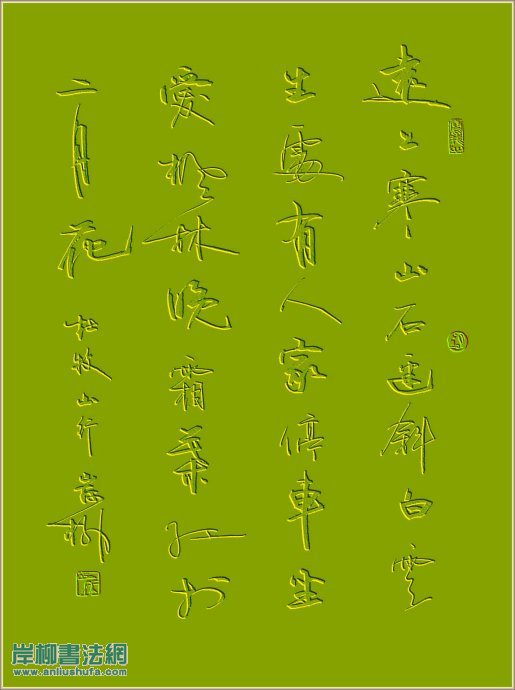 遠上寒山石逕斜白雲
生處有人家停車坐
愛楓林晚霜葉紅於
二月花 杜牧山行 岸柳
岸柳書法網
www.anliushufa.com